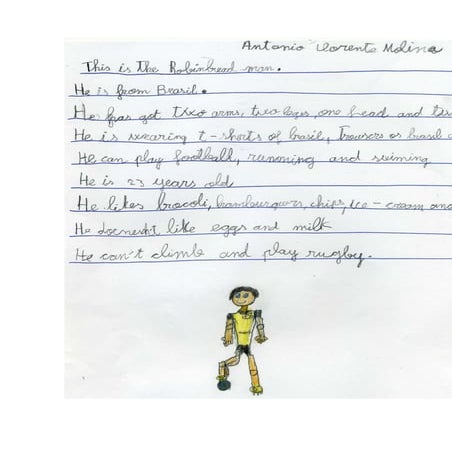 Antonio Llorente Molina
This is the Robinbred man.
He is from Brasil.
He has got two arms, two legs, one head and
He is wearing t-shorts of brasil, Trousers os brasil
He can play football, running and swiming
He is 23 years old
He likes brocoli, hamburguers, chips, ice-cream and
He doesn't like eggs and milk
He can't climb and play rugby.